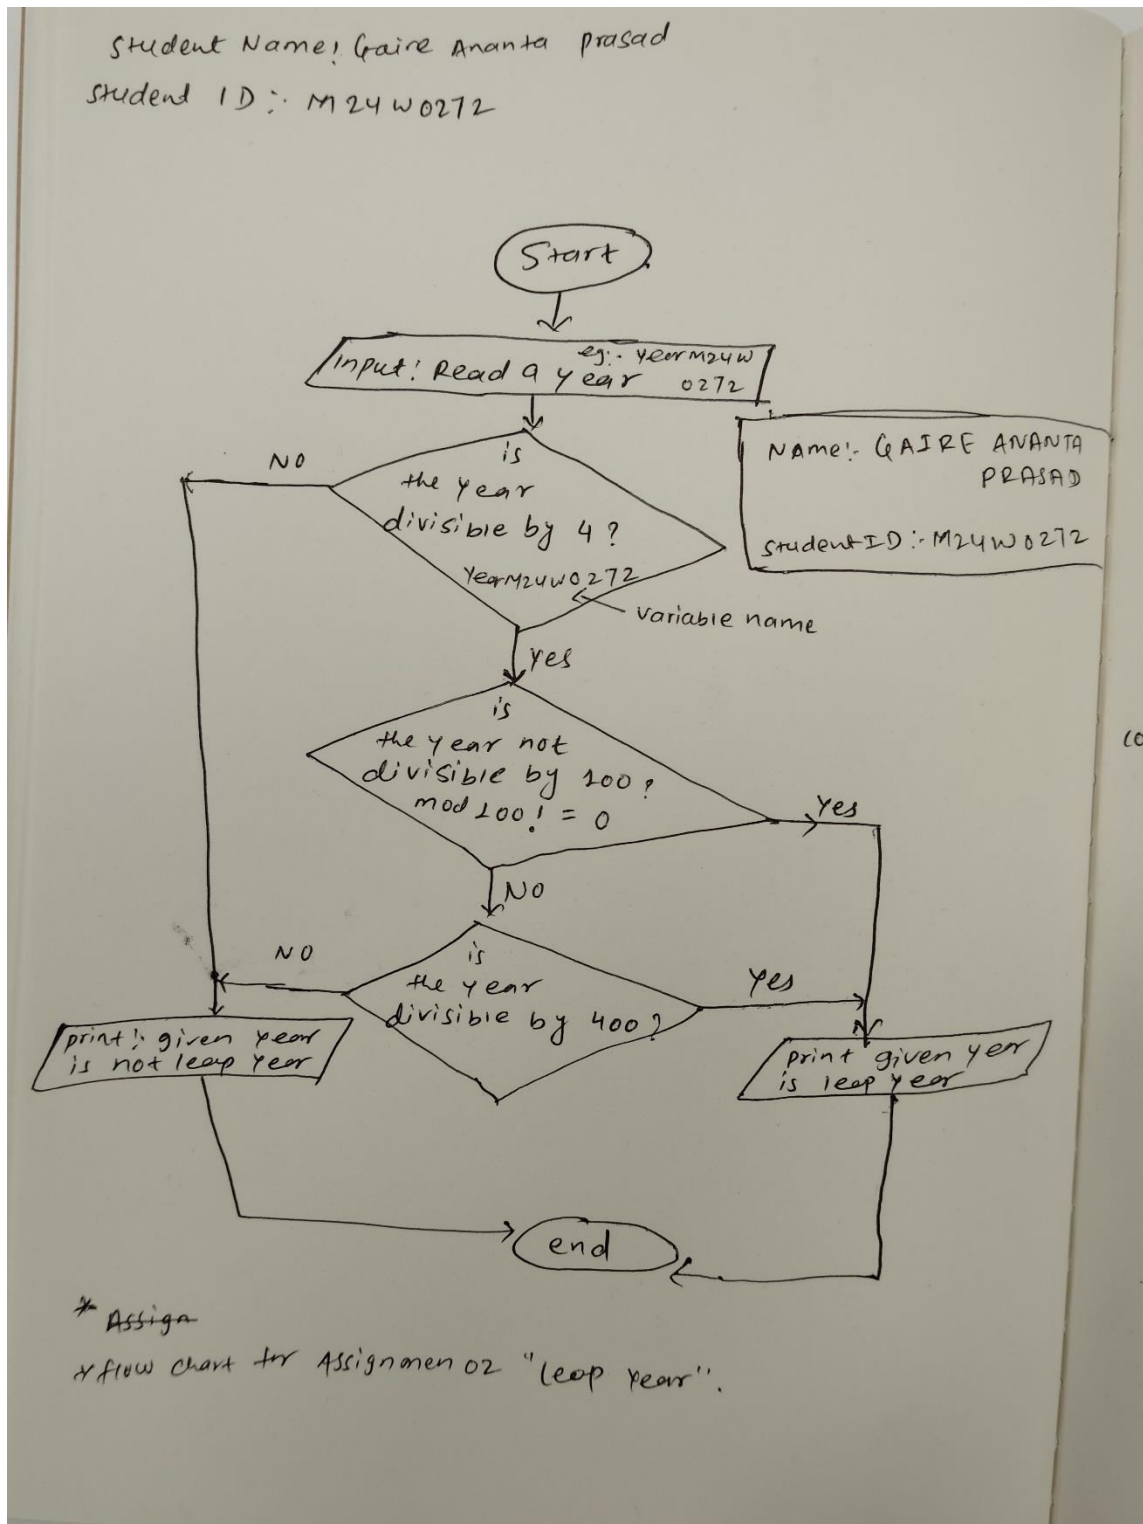 Student Name: Gaire Ananta prasad
Student ID:- M24W0272
Start
eg:- YearM24W
input: Read a year 0272
Name:- GAIRE ANANTA
PRASAD
StudentID:- M24W0272
NO
is
the year
divisible by 4?
YearM24W0272
variable name
Yes
is
the year not
divisible by 100?
mod 100! = 0
Yes
NO
NO
is
the year
divisible by 400?
Yes
print: given year
is not leap year
print given yer
is leap year
end
* Assign
* flow chart for Assignmen 02 "leap year".